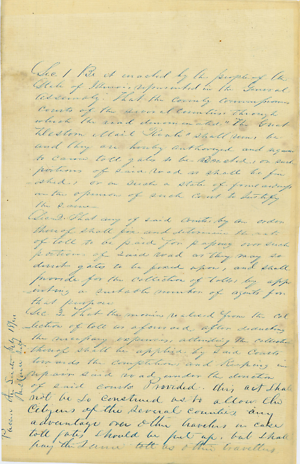 Sec 1. Be it enacted by the people of the
State of Illinois, represented in the General
Assembly, That the county commissioners
Courts of the several counties through
which the road denominated "The Great
Western Mail Route" shall run be
and they are hereby authorized and required
to cause toll gates to be erected on such
portions of said road as shall be fin
ished, or in such a state of forwardness
in the opinion of such court to justify
the same
Sec 2. That any of said courts by an order
thereof shall fix and determine the rate
of toll to be paid for passing over such
portions of said road as they may so
direct gates to be placed upon, and shall
provide for the collection of tolls by app
ointing a suitable number of agents for
that purpose
Sec 3. That the monies received from the col
lection of toll as aforesaid after deducting
the necessary expenses attending the collection
thereof shall be applied by said courts
towards the completion and keeping in
repair said road under the direction
of said courts Provided. this act shall
not be so construed as to allow the
Citizens of the several counties any
advantage over other travellers in case
toll gates should be put up, but shall
pay the same toll as other travellers